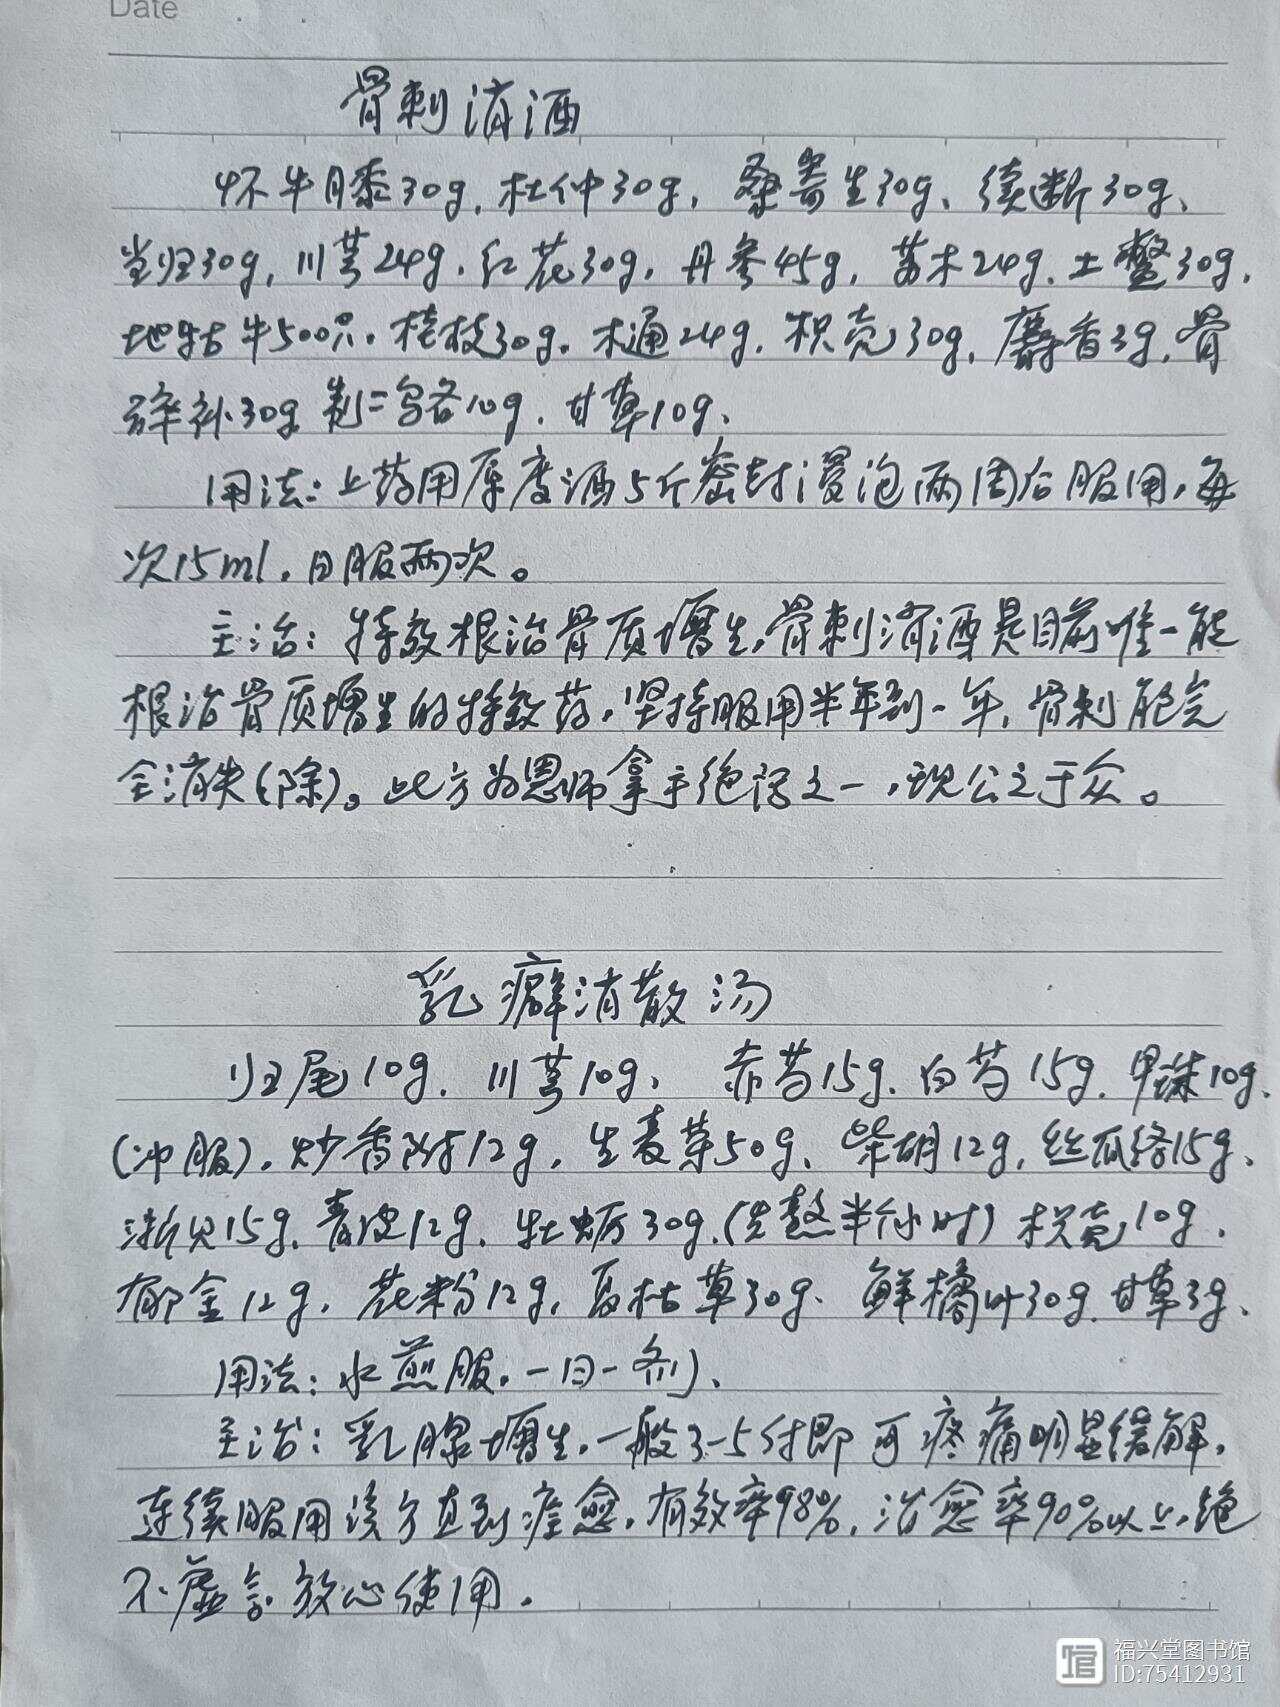 Date
骨刺消酒
怀牛膝30g,杜仲30g,桑寄生30g、续断30g、
当归30g,川芎24g.红花30g,丹参45g,苏木24g.土鳖30g,
地牯牛500只.桂枝30g.木通24g.枳壳30g,麝香3g,骨
碎补30g 制二乌各10g.甘草10g、
用法:上药用厚度酒5斤密封浸泡两周后服用,每
次15ml,日服两次。
主治:特效根治骨质增生,骨刺消酒是目前唯一能
根治骨质增生的特效药,坚持服用半年到一年,骨刺能完
全消失(除)。此方为恩师拿手绝活之一,现公之于众。
乳癖消散汤
归尾10g.川芎10g、赤芍15g.白芍15g.甲珠10g、
(冲服).炒香附12g,生麦芽50g、柴胡12g,丝瓜络15g、
浙贝15g、青皮12g、牡蛎30g.(先熬半小时)枳壳10g.
郁金12g,花粉12g,夏枯草30g、鲜橘叶30g.甘草3g、
用法:水煎服.一日一剂、
主治:乳腺增生,一般3-5付即可疼痛明显缓解,
连续服用该方直到痊愈,有效率98%,治愈率90%以上,绝
不虚言.放心使用.
福兴堂图书馆
ID:75412931